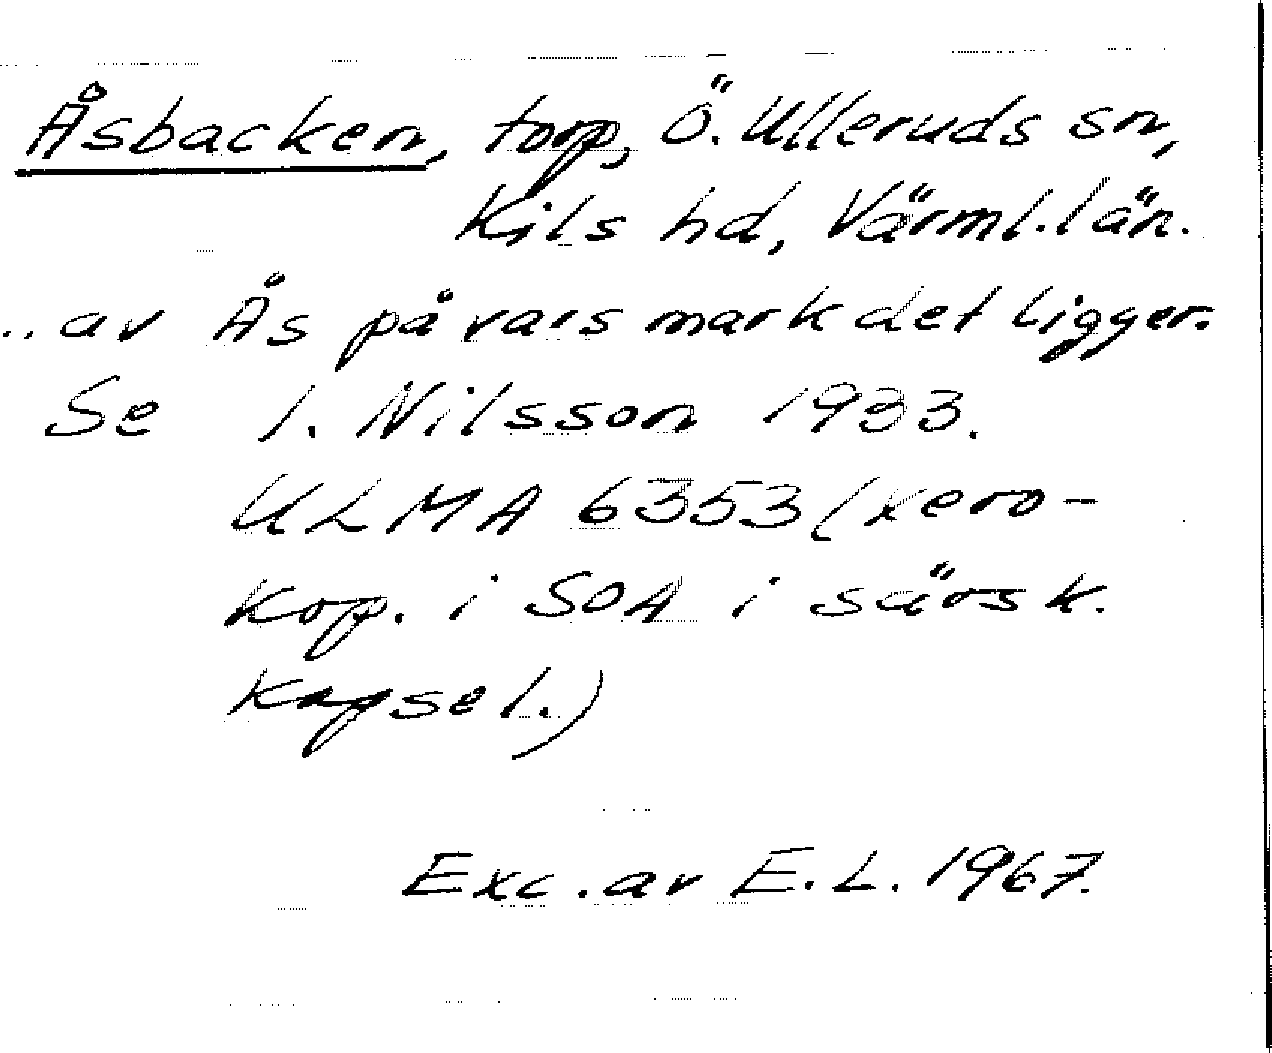 Åsbacken, torp, Ö. Ulleruds sn,
Kils hd, Värml. län.
.. av Ås på vars mark det ligger.
Se I. Nilsson 1933.
ULMA 6353 (xero-
kop. i SOA i särsk.
kapsel.)
Exc. av E. L. 1967.